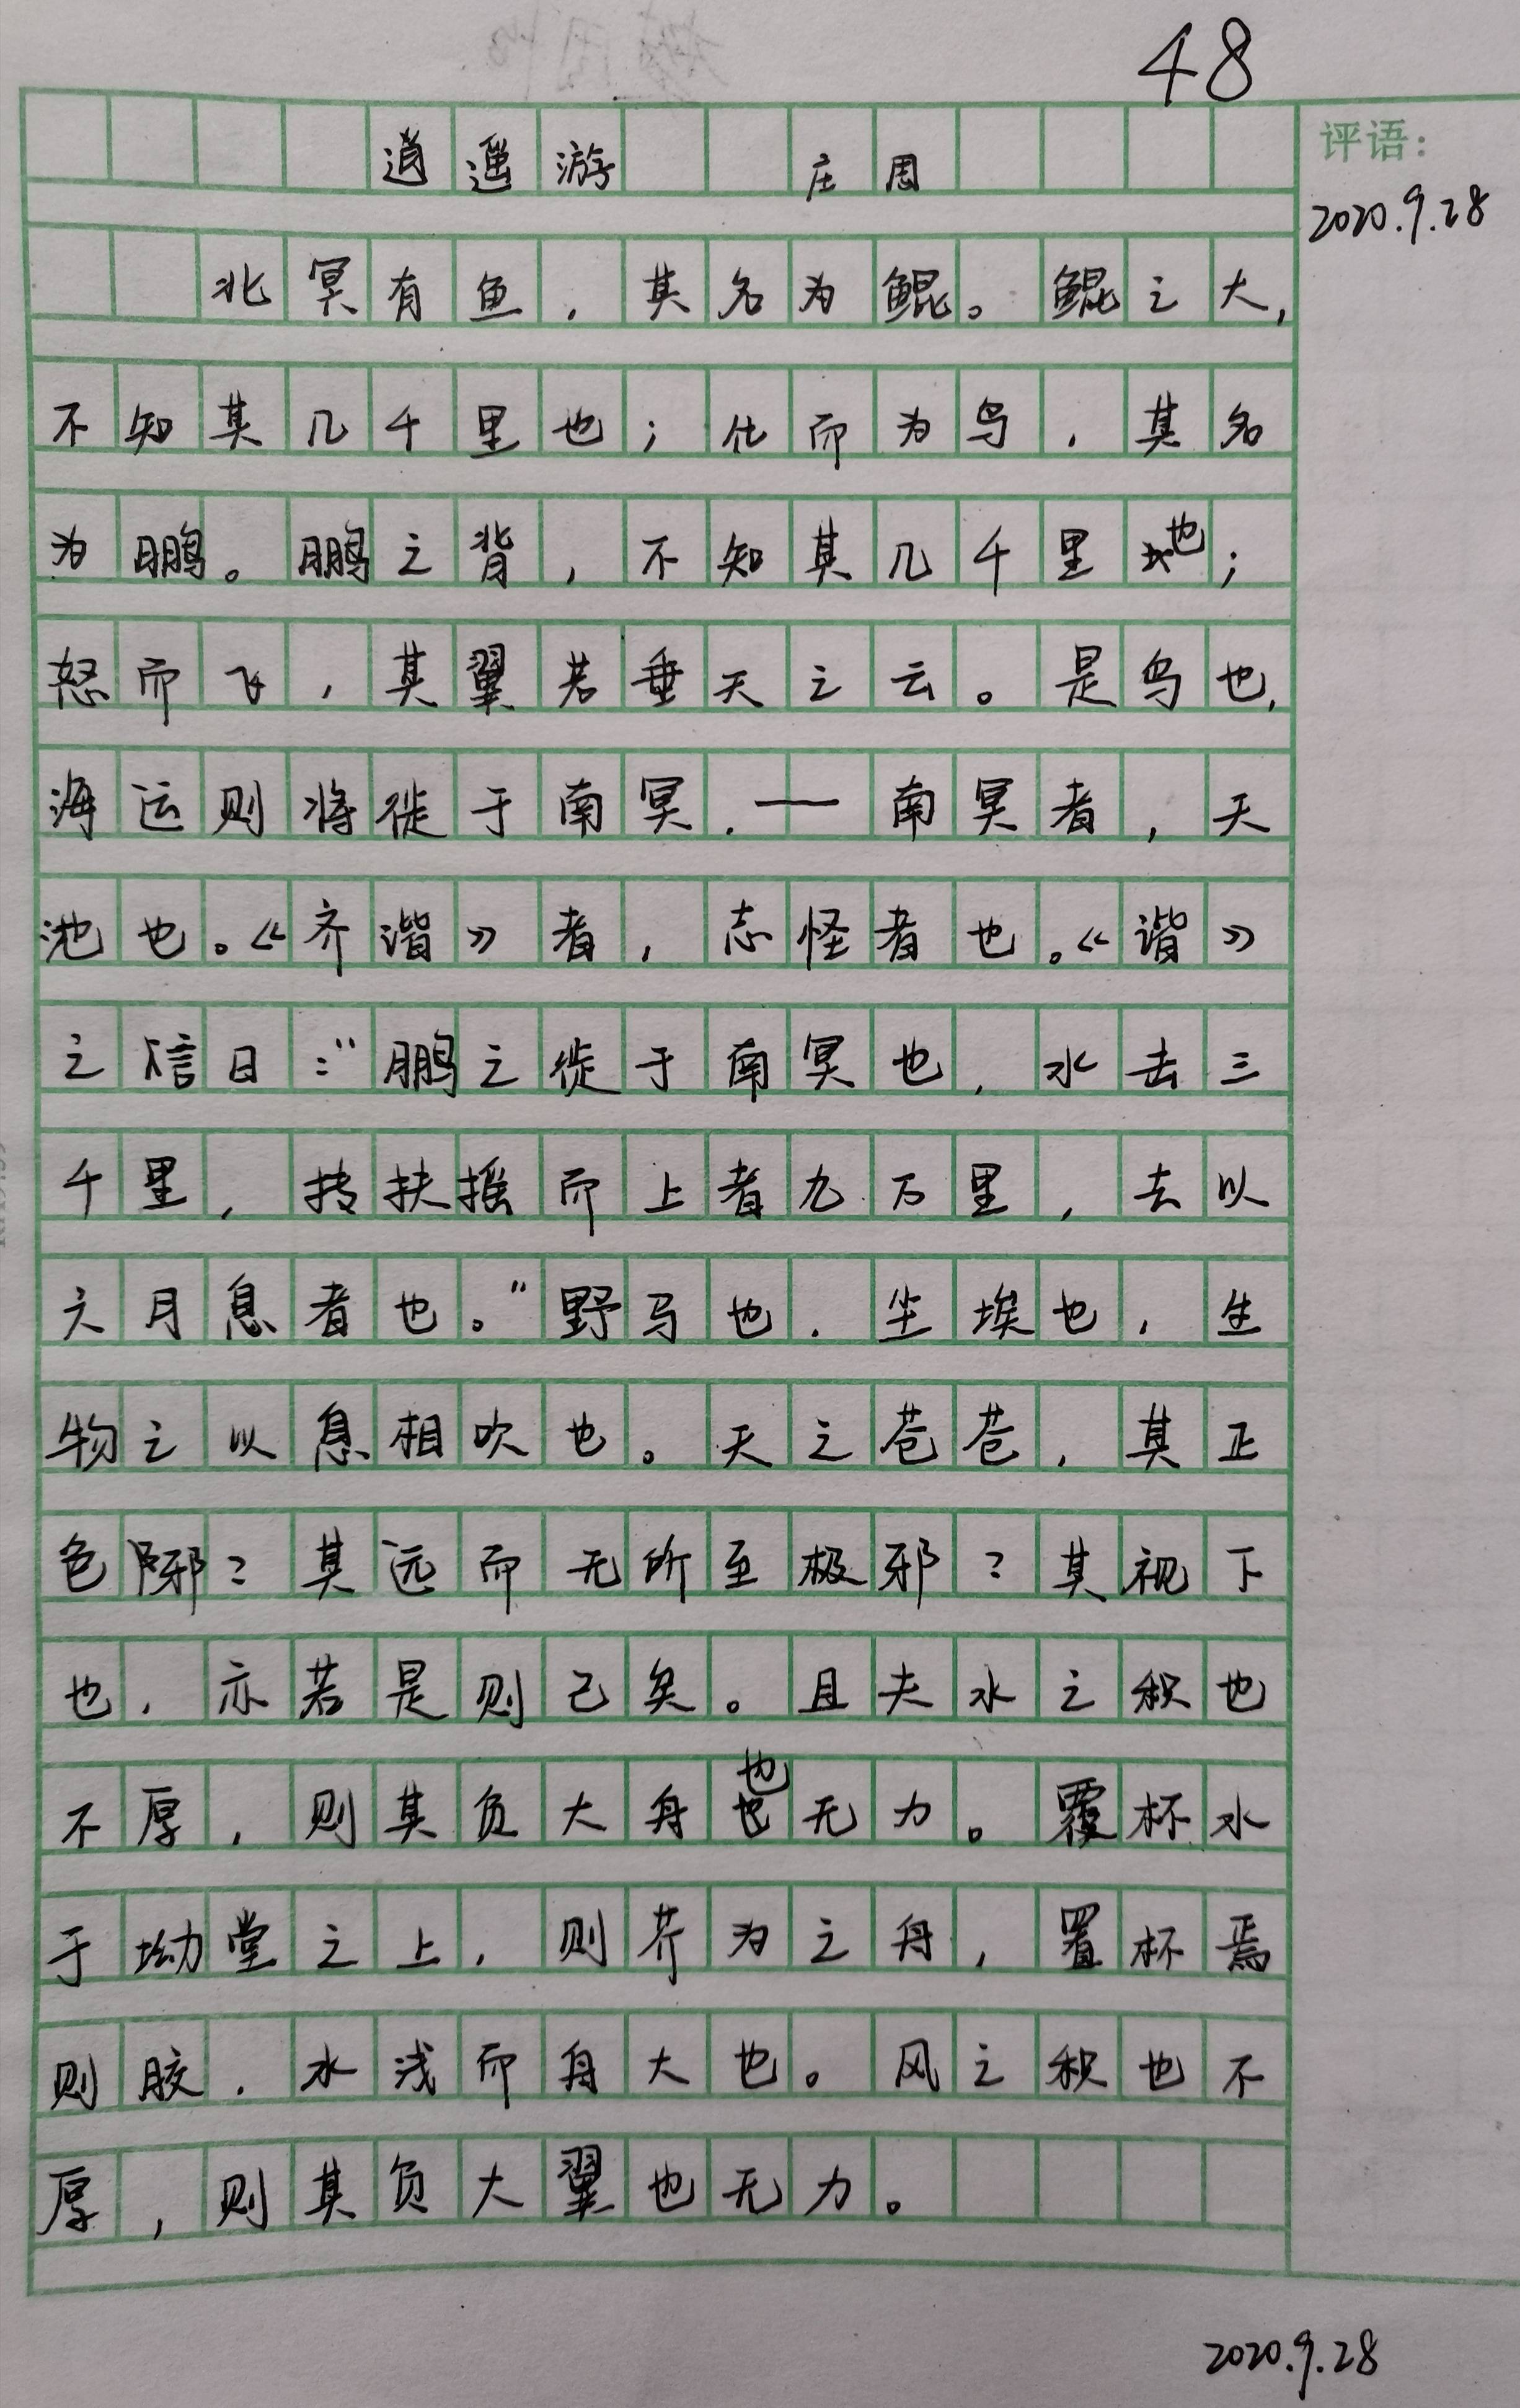 48
逍遥游 庄周
评语：
2020.9.28
北冥有鱼，其名为鲲。鲲之大，
不知其几千里也；化而为鸟，其名
为鹏。鹏之背，不知其几千里也；
怒而飞，其翼若垂天之云。是鸟也，
海运则将徙于南冥.——南冥者，天
池也。《齐谐》者，志怪者也。《谐》
之信曰：“鹏之徙于南冥也，水去三
千里，抟扶摇而上者九万里，去以
六月息者也。”野马也，尘埃也，生
物之以息相吹也。天之苍苍，其正
色邪？其远而无所至极邪？其视下
也，亦若是则已矣。且夫水之积也
不厚，则其负大舟也无力。覆杯水
于坳堂之上，则芥为之舟，置杯焉
则胶，水浅而舟大也。风之积也不
厚，则其负大翼也无力。
2020.9.28